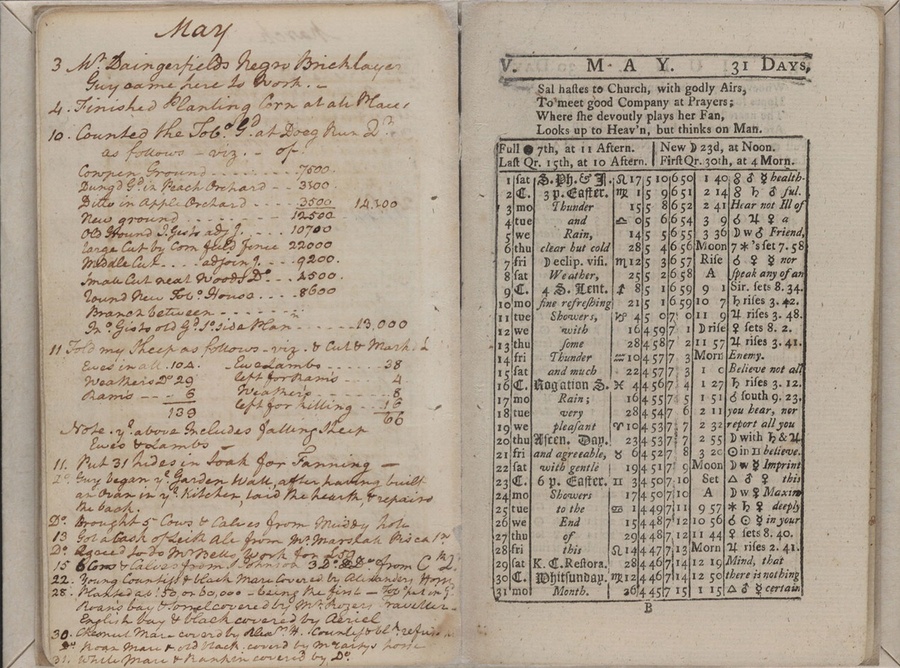 May
3 Mr. Daingerfields Negro Bricklayer
Guy came here to Work. -
4. Finished Planting Corn at all Places
10. Counted the Tobo. Gd. at Doeg Run Qr.
as follows - viz. - of
Cowpen Ground 7500
Dung'd Gd. in Peach Orchard - 3300
Ditto in Apple Orchard 3500 14,300
New ground 12500
Old Ground 10700
large Cut by Corn field fence 22000
Middle Cut adjoing. 9200.
Small Cut near Woods Do. 4500.
round New Tobo. House 8600
Branch between
13,000
11 Told my Sheep as follows - viz. & Cut & Mark'd
Ewes in all. 104. Ewe Lambs 38
Weathers Do. 29 left for Rams 4
Rams 6 Weathers 8
139 left for killing 16
66
Note. ye. above Includes fatting Sheep
Ewes & Lambs -
11. Put 31 hides in Soak for Tanning -
Do. Guy began ye. Garden Wall, after having built
an Oven in ye. Kitchen, laid the hearth, & repaird
the back.
Do. Brought 5 Cows & Calves from Muddy hole
13 Got a Cask of Leith Ale from Mr. Marshal Piscata.
Do. Agreed to do Mr Bells Work for £50.
15 6 Cows & Calves from Johnson 3 Do. from C
22. Young Countess & black Mare Covered by Alexanders Horse
28. Planted abt. 50 or 60,000 - being the first -
Roan bay & Sorrel covered by Mr. Rozers Traveller -
English bay & black covered by Aeriel
30. Chesnut Mare covered by Alexa. H.
Do. Roan Mare & old black covered by horse
31. White Mare & Rankin covered by Do.
V. M A Y. 31 DAYS,
Sal hastes to Church, with godly Airs,
To meet good Company at Prayers;
Where she devoutly plays her Fan,
Looks up to Heav'n, but thinks on Man.
Full ● 7th, at 11 Aftern. New ☽ 23d, at Noon.
Last Qr. 15th, at 10 Aftern. First Qr. 30th, at 4 Morn.
1 sat S. Ph. & J. ♌ 17 5 10 6 50 1 40 ☍ ♂ ☿ health-
2 C. 3 p. Easter. ♍ 1 5 9 6 51 2 14 ☍ ♄ ♂ ful.
3 mo Thunder 15 5 8 6 52 2 41 Hear not Ill of
4 tue and ♎ 0 5 6 6 54 3 9 ♂ ♃ ♀ a
5 we Rain, 14 5 5 6 55 3 36 ☽ w ♂ Friend,
6 thu clear but cold 28 5 4 6 56 Moon 7 *'s set 7. 58
7 fri ☽ eclip. visi. ♏ 12 5 3 6 57 Rise ♂ ♀ ☿ nor
8 sat Weather, 25 5 2 6 58 A speak any of an
9 C. 4 S. Lent. ♐ 8 5 1 6 59 9 1 Sir. sets 8. 34.
10 mo fine refreshing 21 5 1 6 59 10 7 ♄ rises 3. 42.
11 tue Showers, ♑ 4 5 0 7 0 11 9 ♃ rises 3. 48.
12 we with 16 4 59 7 1 ☽ rise ♀ sets 8. 2.
13 thu some 28 4 58 7 2 11 57 ♃ rises 3. 41.
14 fri Thunder ♒ 10 4 57 7 3 Morn Enemy.
15 sat and much 22 4 57 7 3 1 0 Believe not all
16 C. Rogation S. ♓ 4 4 56 7 4 1 27 ♄ rises 3. 12.
17 mo Rain; 16 4 55 7 5 1 51 ♂ south 9. 23.
18 tue very 28 4 54 7 6 2 11 you hear, nor
19 we pleasant ♈ 10 4 53 7 7 2 32 report all you
20 thu Ascen. Day. 23 4 53 7 7 2 55 ☽ with ♄ & ♃
21 fri and agreeable, ♉ 6 4 52 7 8 3 20 ☉ in ♊ believe.
22 sat with gentle 19 4 51 7 9 Moon ☽ w ☿ Imprint
23 C. 6 p. Easter. ♊ 3 4 50 7 10 Set △ ♂ ♀ this
24 mo Showers 17 4 50 7 10 A ☽ w ♀ Maxim
25 tue to the ♋ 1 4 49 7 11 9 57 * ♄ ♀ deeply
26 we End 15 4 48 7 12 10 56 ☌ ☉ ☿ in your
27 thu of 29 4 48 7 12 11 44 ♀ sets 8. 40.
28 fri this ♌ 14 4 47 7 13 Morn ♃ rises 2. 41.
29 sat K. C. Restora. 28 4 46 7 14 12 19 Mind, that
30 C. Whitsunday. ♍ 12 4 46 7 14 12 50 there is nothing
31 mo Month. 26 4 45 7 15 1 15 △ ♂ ☿ certain
B